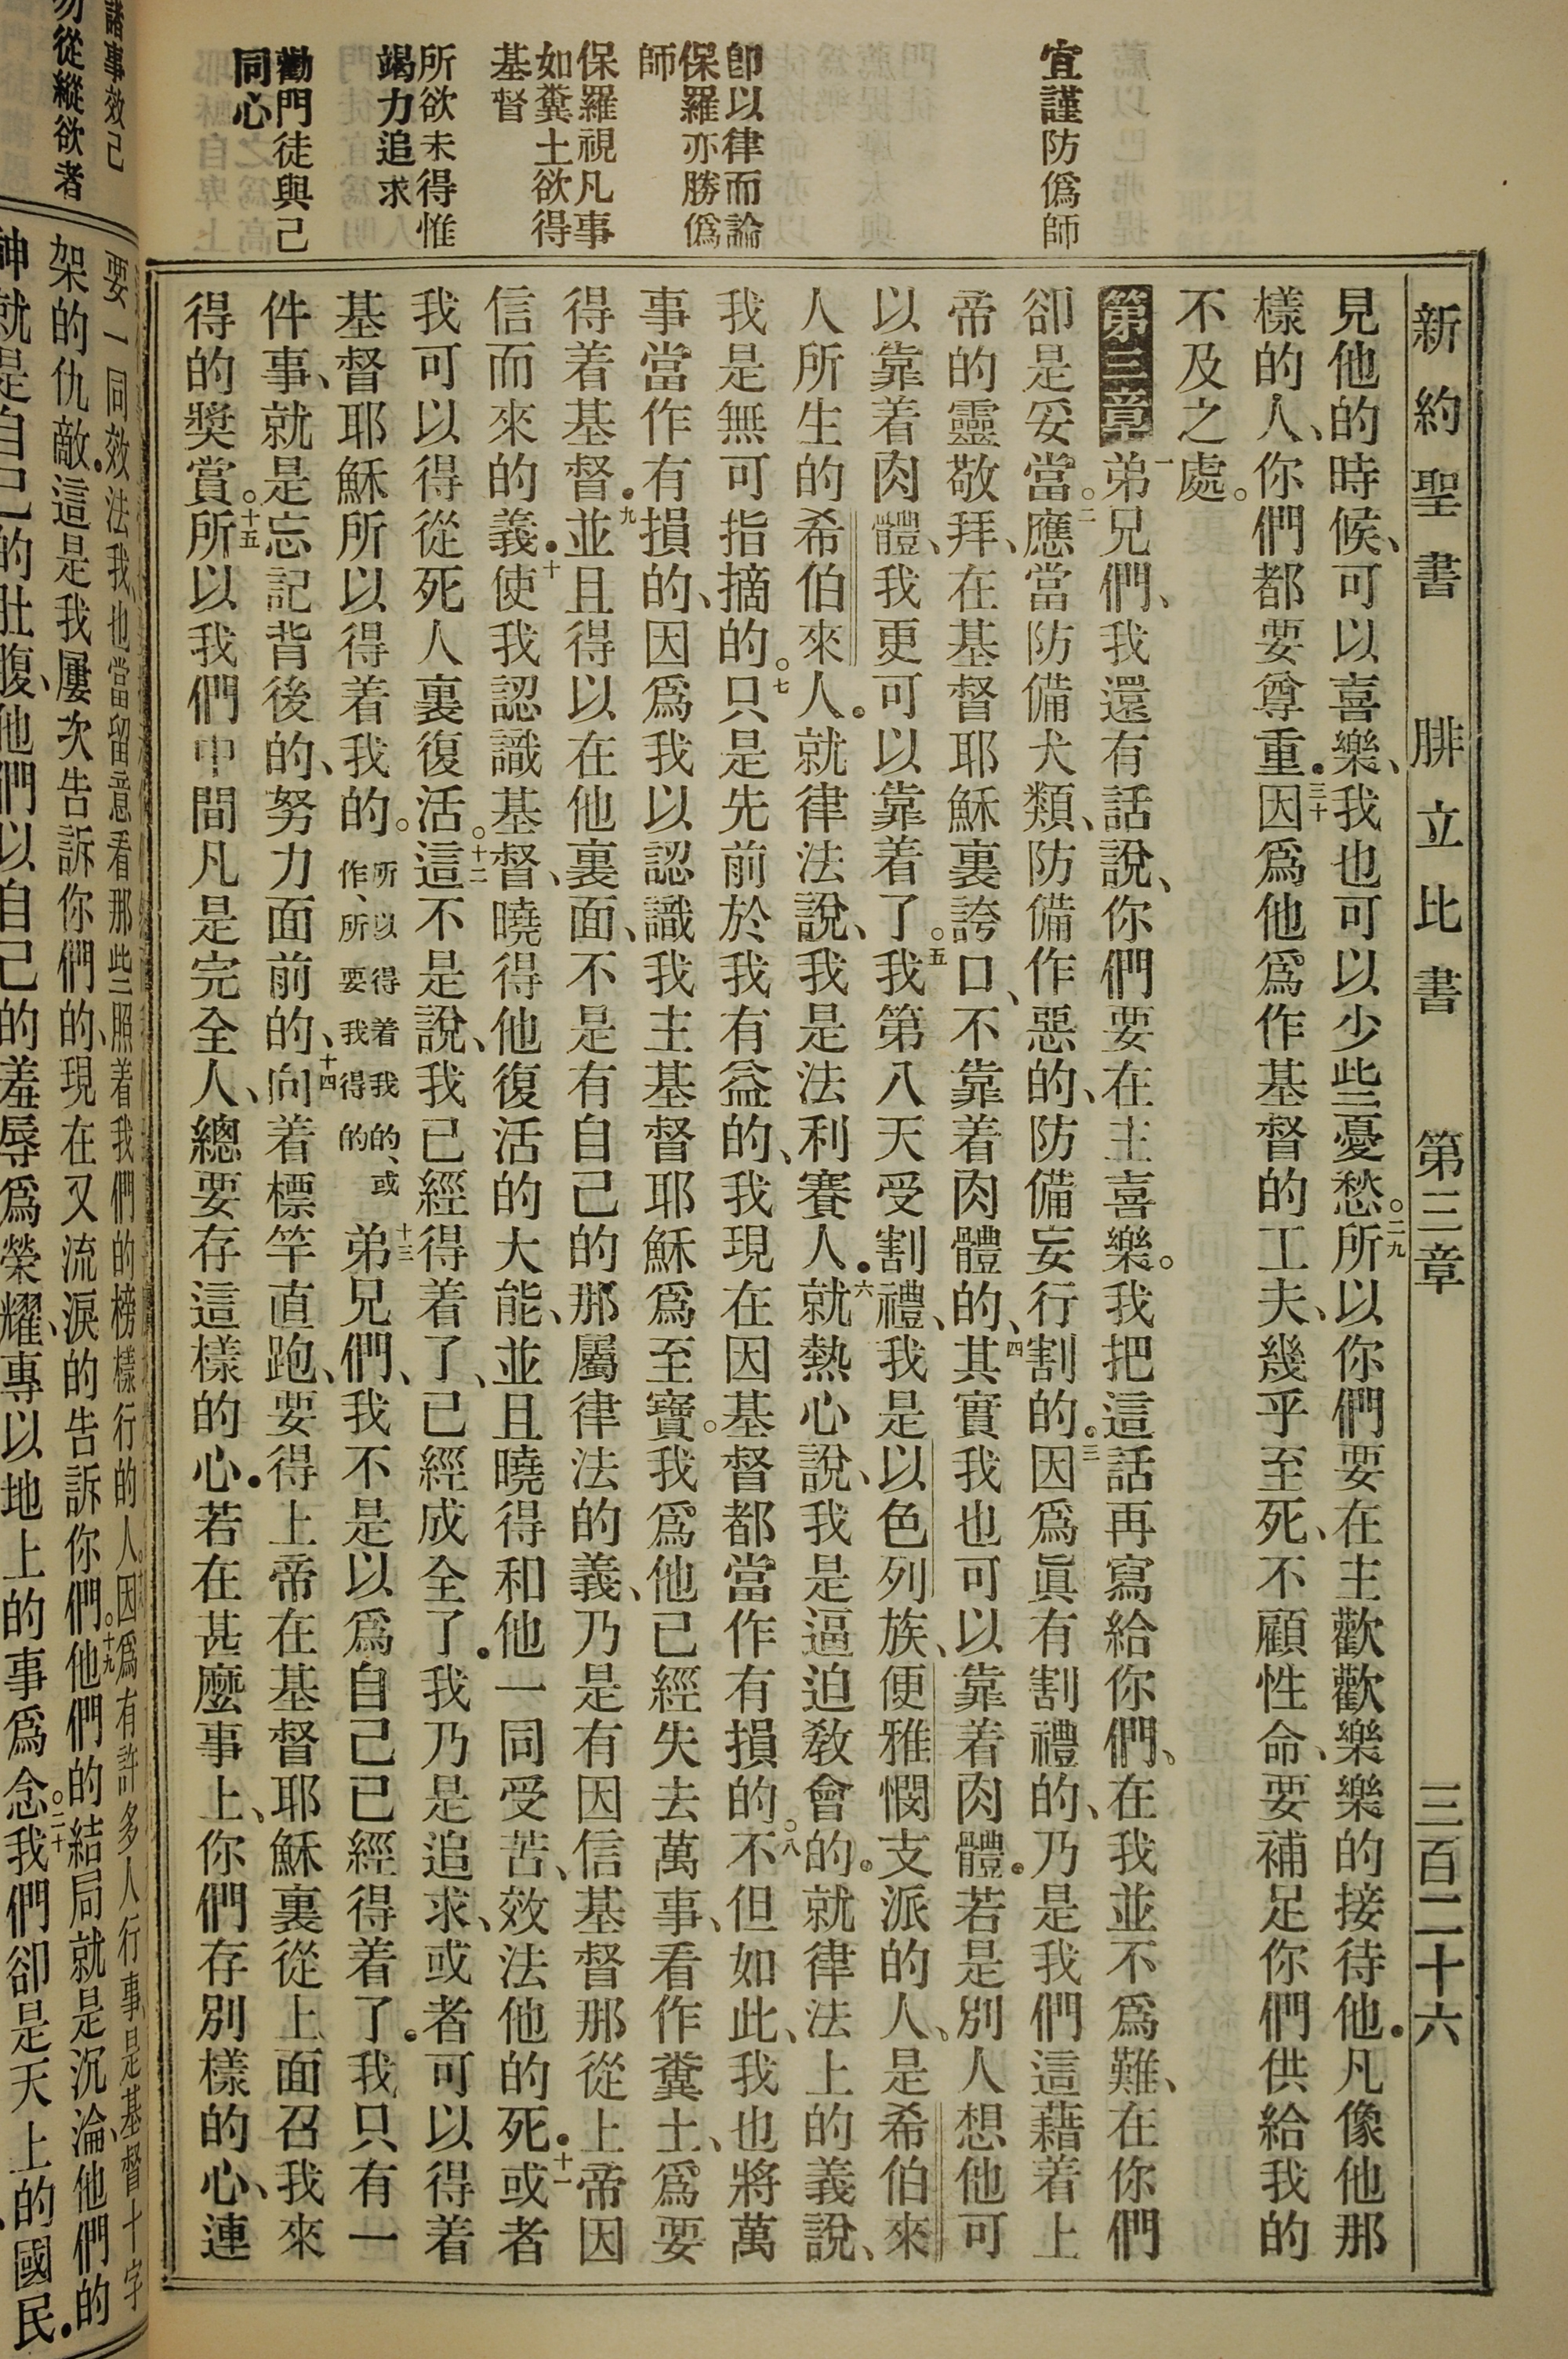 新約聖書 腓立比書 第三章 三百二十六
見他的時候、可以喜樂、我也可以少些憂愁。二九所以你們要在主歡歡樂樂的接待他．凡像他那
樣的人、你們都要尊重．三十因爲他爲作基督的工夫、幾乎至死、不顧性命、要補足你們供給我的
不及之處。
第三章 一弟兄們、我還有話說、你們要在主喜樂。我把這話再寫給你們、在我並不爲難、在你們
卻是妥當。二應當防備犬類、防備作惡的、防備妄行割的。三因爲眞有割禮的、乃是我們這藉着上
帝的靈敬拜、在基督耶穌裏誇口、不靠着肉體的、四其實我也可以靠着肉體．若是別人想他可
以靠着肉體、我更可以靠着了。五我第八天受割禮、我是以色列族、便雅憫支派的人、是希伯來
人所生的希伯來人．就律法說、我是法利賽人．六就熱心說、我是逼迫敎會的．就律法上的義說、
我是無可指摘的。七只是先前於我有益的、我現在因基督都當作有損的。八不但如此、我也將萬
事當作有損的、因爲我以認識我主基督耶穌爲至寶。我爲他已經失去萬事、看作糞土、爲要
得着基督．九並且得以在他裏面、不是有自己的那屬律法的義、乃是有因信基督那從上帝因
信而來的義．十使我認識基督、曉得他復活的大能、並且曉得和他一同受苦、效法他的死．十一或者
我可以得從死人裏復活。十二這不是說、我已經得着了、已經成全了．我乃是追求、或者可以得着
基督耶穌所以得着我的。所以得着我的、或作、所要我得的 十三弟兄們、我不是以爲自己已經得着了．我只有一
件事、就是忘記背後的、努力面前的、十四向着標竿直跑、要得上帝在基督耶穌裏從上面召我來
得的獎賞。十五所以我們中間凡是完全人、總要存這樣的心．若在甚麼事上、你們存別樣的心、連
宜謹防僞師
卽以律而論
保羅亦勝僞
師
保羅視凡事
如糞土欲得
基督
所欲未得惟
竭力追求
勸門徒與己
同心
諸事效己
勿從縱欲者
要一同效法我、也當留意看那些照着我們的榜樣行的人。因爲有許多人行事、是基督十字
架的仇敵．這是我屢次告訴你們的、現在又流淚的告訴你們。十九他們的結局就是沉淪、他們的
神就是自己的肚腹、他們以自己的羞辱爲榮耀、專以地上的事爲念。二十我們卻是天上的國民．